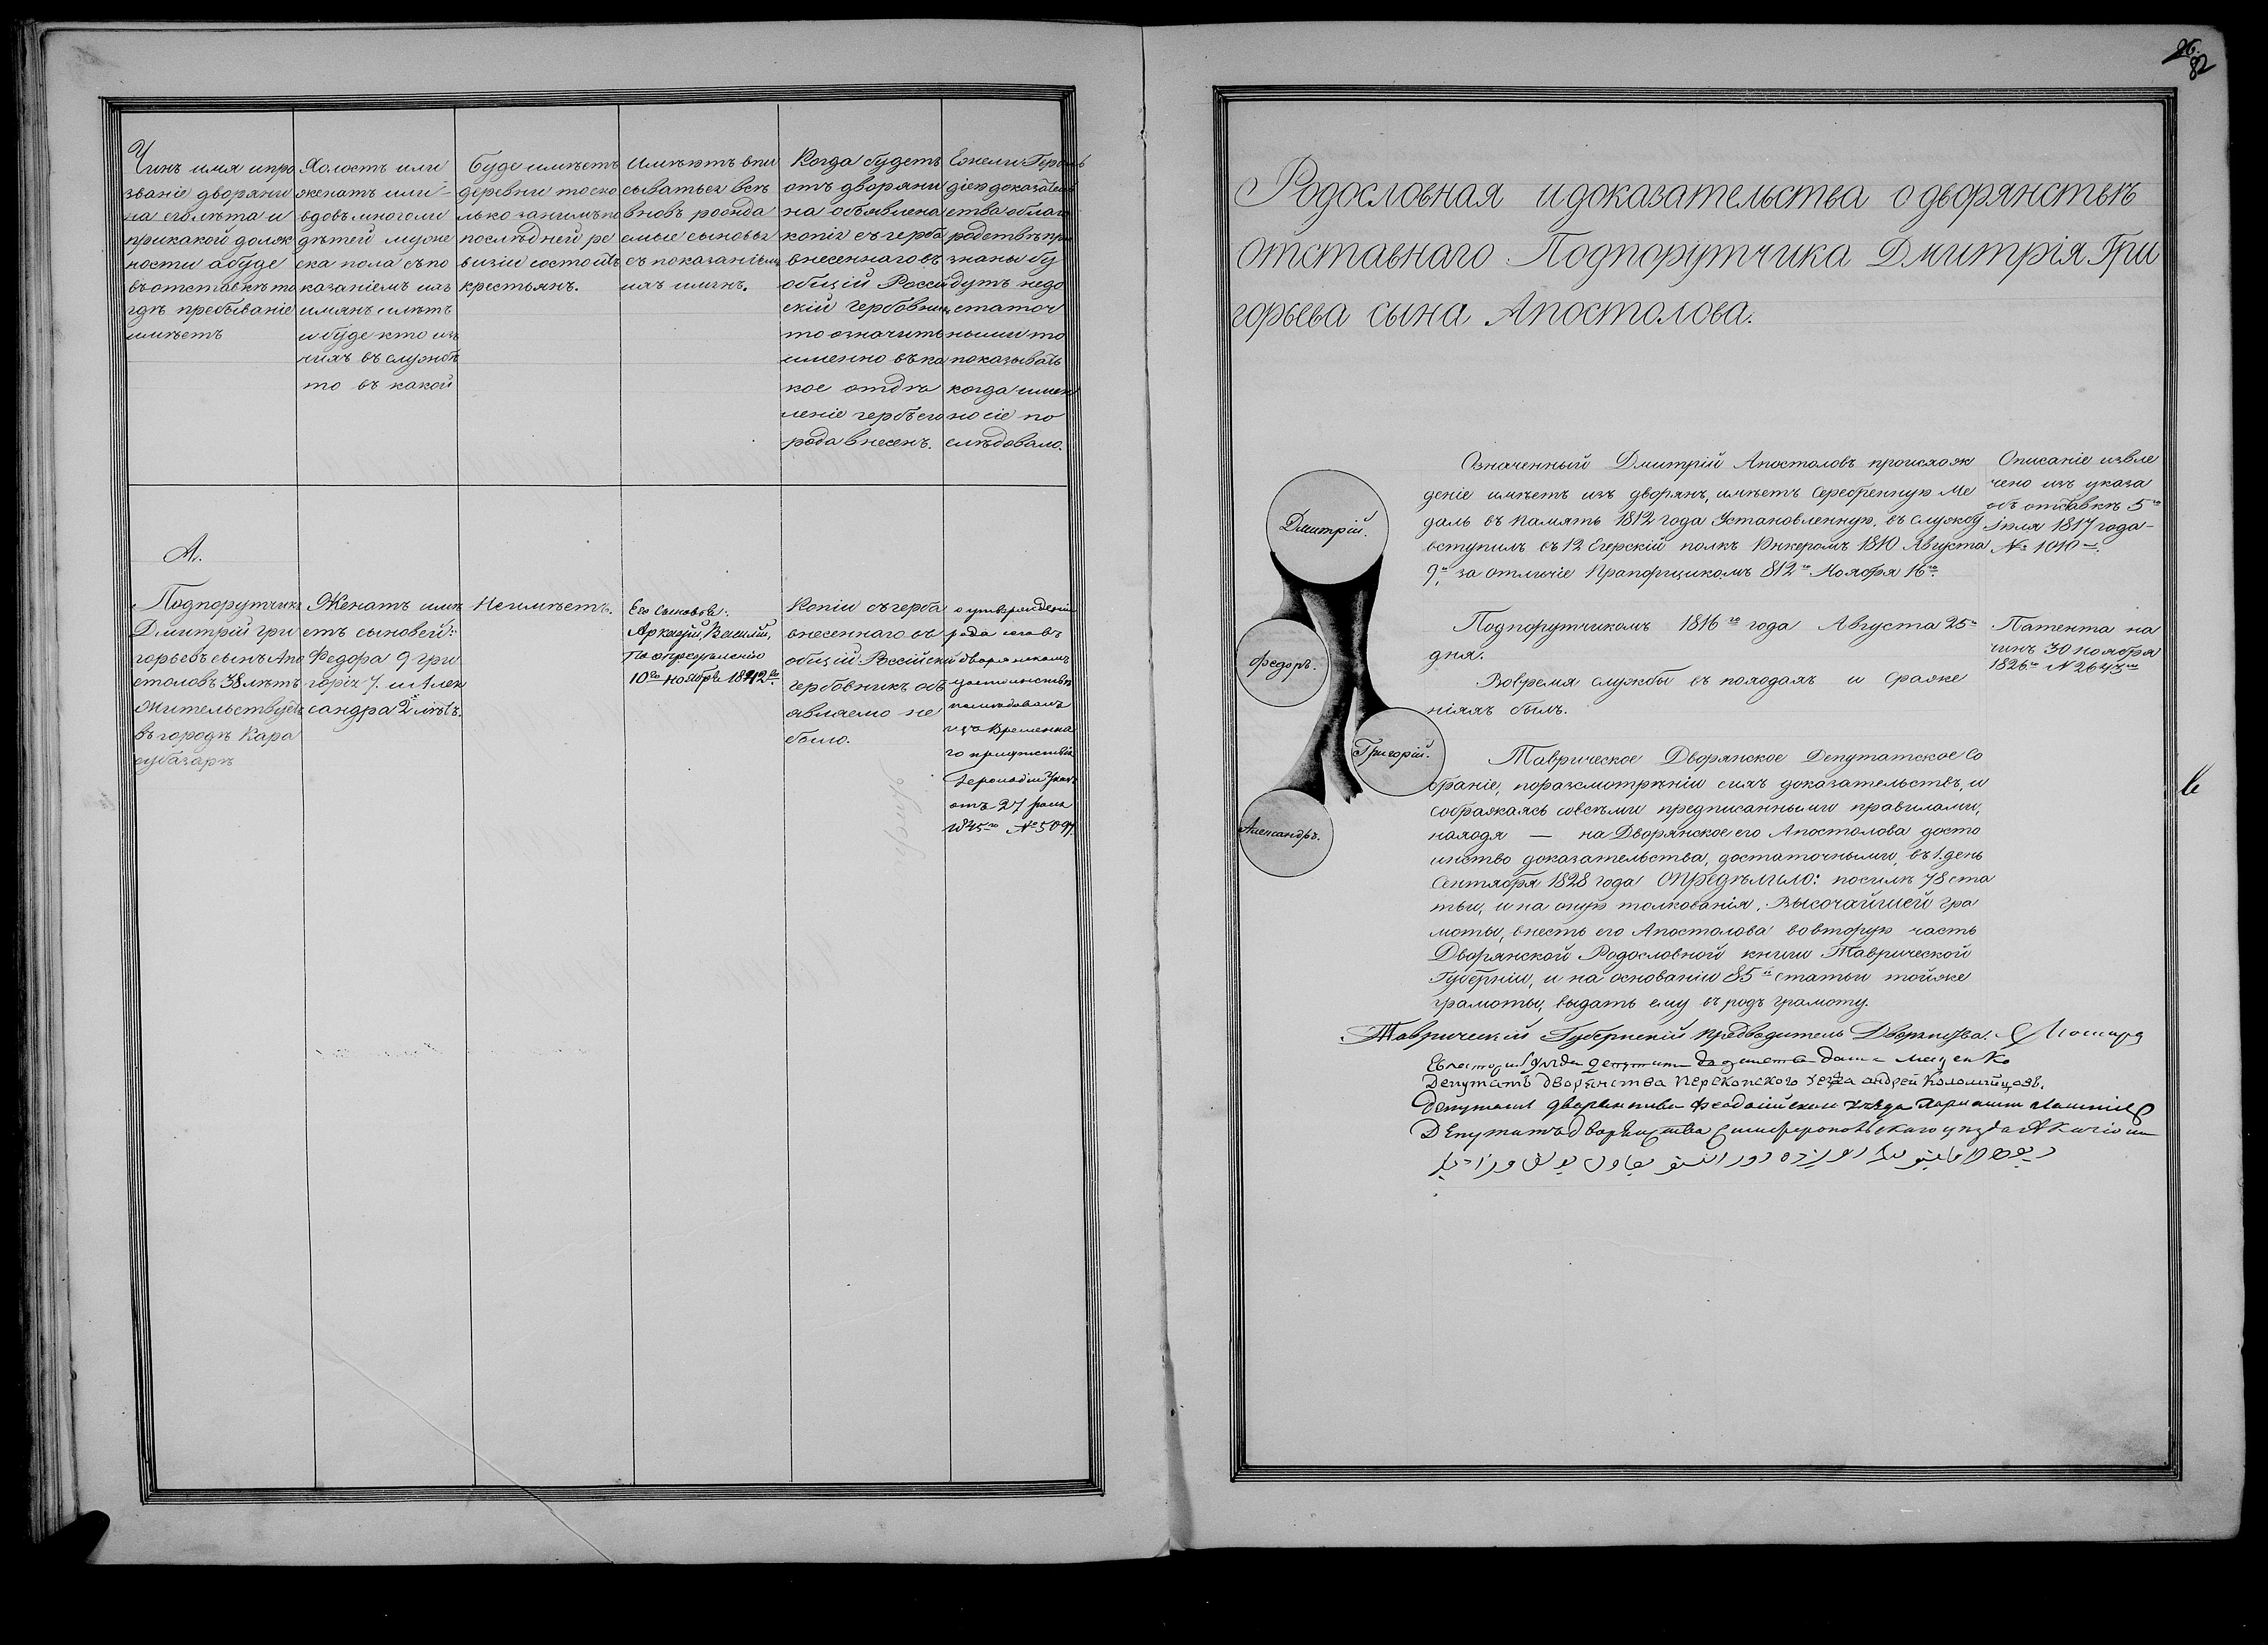 Чинъ имя ипро
званіе дворяни
на еголѣта и
прикакой долж
ности абуде
въотставкѣ то
гдѣ пребываніе
имѣетъ
Холостъ или
женатъ или
вдовъ многоли
дѣтей муже
ска пола съпо
казаніемъ ихъ
имянъ илѣтъ
ибуде кто изъ
нихъ въслужбѣ
то въ какой
буде имѣетъ
деревни тоско
лько занимъпо
послѣдней ре
визіи состоитъ
крестьянъ.
Имѣютъ впи
сываться всѣ
вновь рожда
емые сыновья
съпоказаніемъ
ихъ имянъ.
Когда будетъ
отъ дворяни
на объявлена
копія съгерба
внесеннаго въ
общій Россій
скій Гербовникъ
то означить
именно въка
кое отдѣ
леніе гербъего
рода внесенъ.
Ежели Героль
діею доказатель
ства облаго
родствѣ при
знаны бу
дутъ недо
статоч
ными то
показывать
когда имен
но сіе по
слѣдовало.
А.
Подпорутчикъ
Дмитрій Гри
горьевъ сынъ Апо
столовъ 38 лѣтъ
Жительствуетъ
въ городѣ Кара
субазарѣ
Женатъ имѣ
етъ сыновей:
Федора 9 Гри
горія 7. и Алек
сандра 2 лѣтъ.
Неимѣетъ.
Его Сыновья:
Аркадій, Василій,
По опредѣленію
10го ноября 1842го
Копіи съгерба
внесеннаго въ
общій Россійскій
Гербовникъ объ
являемо не
было.
о утвержденіи
рода сего въ
дворянскомъ
достоинствѣ
послѣдовалъ
изъ Временна
го присутствія
Герольдіи Указъ
отъ 27
1845го № 5097.
26.
82
Родословная идоказательства о дворянствѣ
отставнаго Подпорутчика Дмитрія Гри
горьева сына Апостолова.
Дмитрій.
Федоръ.
Григорій.
Александръ.
Означенный Дмитрій Апостоловъ происхож
деніе имѣетъ изъ дворянъ, имѣетъ Серебренную Ме
даль въ память 1812 года Установленную, въ службу
вступилъ въ 12 Егерскій полкъ Юнкеромъ 1810 Августа
9го, за отличіе Прапорщикомъ 812го Ноября 16го.
Описаніе извле
чено изъ указа
объ отставкѣ 5го
іюля 1817 года
№ 1010
Подпорутчикомъ 1816го года Августа 25го
дня.
Вовремя службы въ походахъ и Сраже
ніяхъ былъ.
Патента на
чинъ 30 ноября
1826го № 2643
Таврическое Дворянское Депутатское Со
браніе, поразсмотрѣніи сихъ доказательствъ, и
соображаясь совсѣми предписанными правилами,
находя — на Дворянское его Апостолова досто
инство доказательства, достаточными, въ 1. день
Сентября 1828 года Опредѣлило: посилѣ 78 ста
тьи, и на оную толкованія, Высочайшей гра
моты, внесть его Апостолова вовторую часть
Дворянской Родословной книги Таврической
Губерніи, и на основаніи 85й статьи тойже
грамоты, выдать ему въ родъ грамоту.
Таврическій Губернскій Предводитель Дворянства
Депутатъ дворянства Перекопского уезда андрей Коломійцовъ.
Депутатъ дворянства Феодосійскаго уѣзда
Депутатъ дворянства Симферопольскаго уѣзда